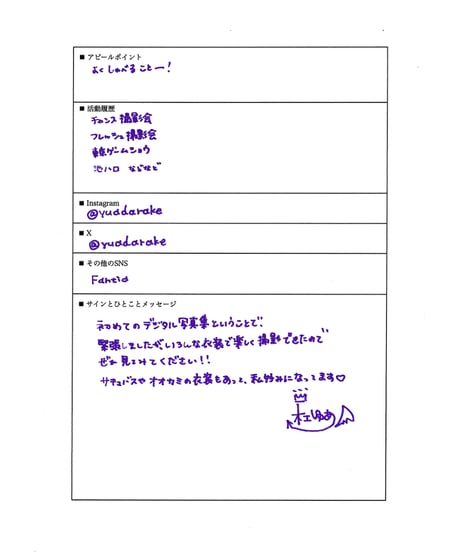 ■ アピールポイント
よくしゃべることー！
■ 活動履歴
チャンス撮影会
フレッシュ撮影会
東京ゲームショウ
池ハロ などなど
■ Instagram
@yuadarake
■ X
@yuadarake
■ その他のSNS
Fantia
■ サインとひとことメッセージ
初めてのデジタル写真集ということで、
緊張しましたが、いろんな衣装で楽しく撮影できたので
ぜひ見てみてください!!
サキュバスやオオカミの衣装もあって、私好みになってます♡